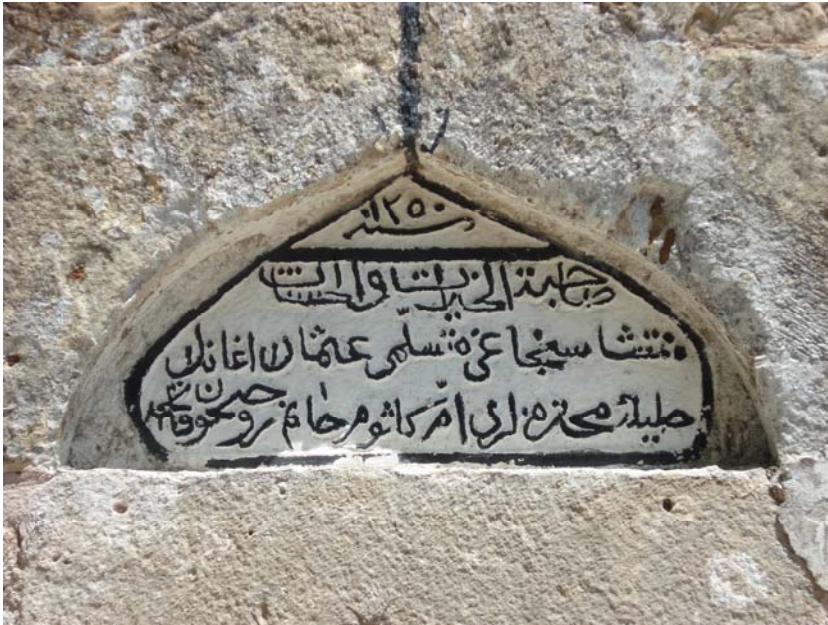 سنه ١٢٥٠
صاحبة الخيرات والحسنات
منتشا سنجاغى متسلمى عثمان اغانك
حليلۀ محترمه لرى ام كلثوم خانم روحيچون